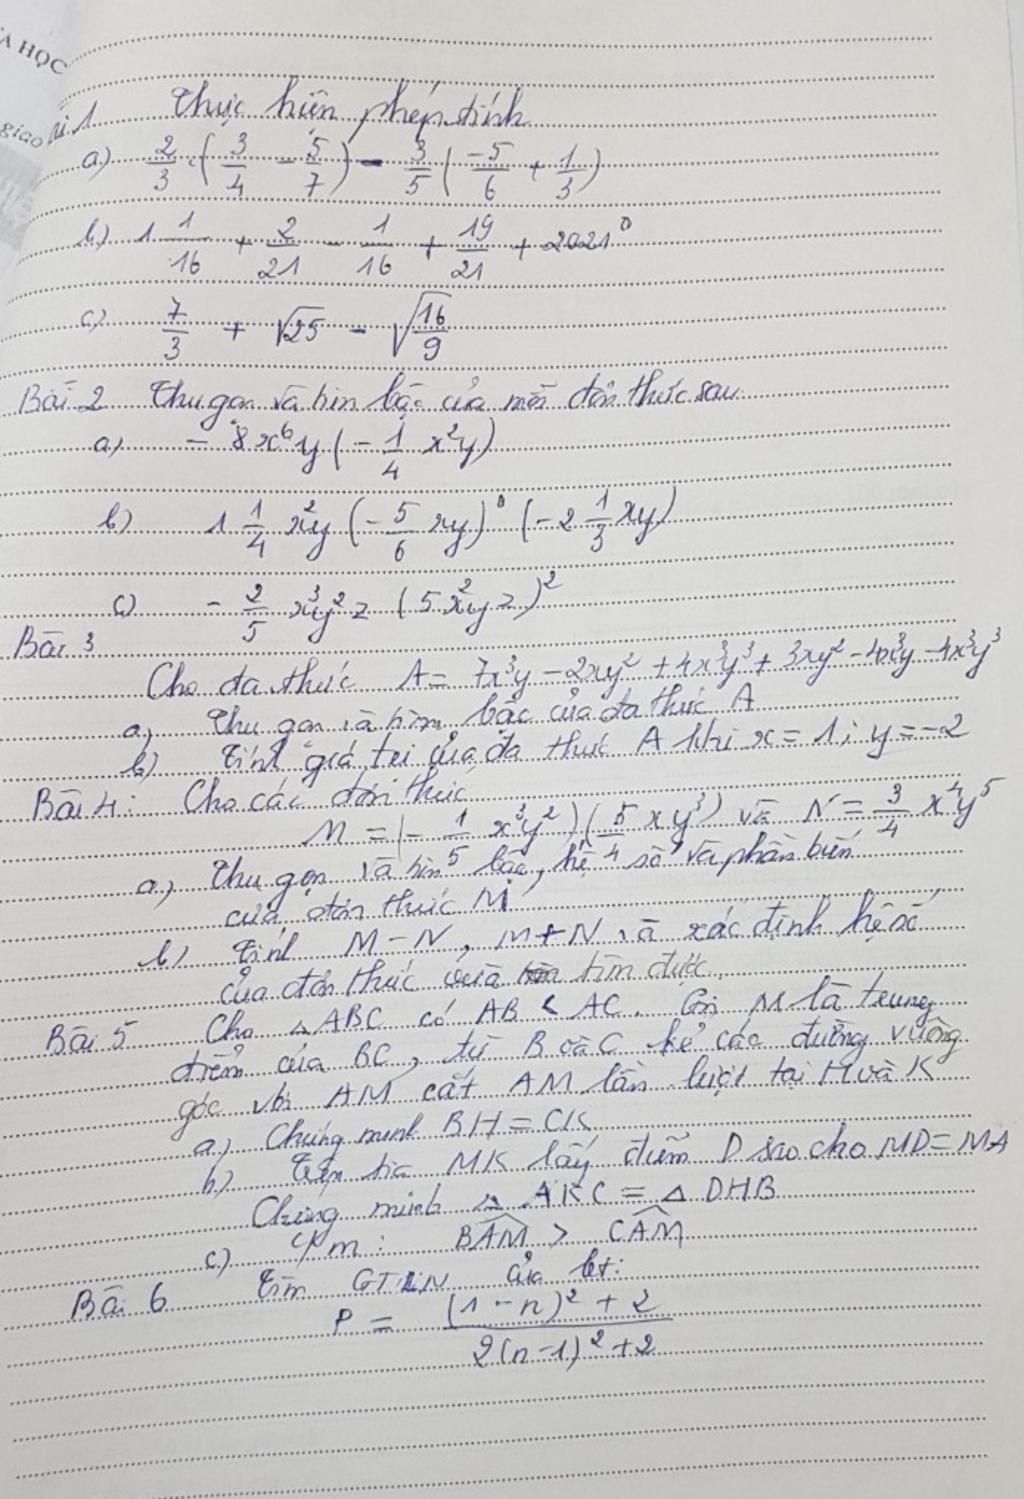 A HỌC
giao
ài 1 Thực hiện phép tính
a) 2/3 . (3/4 - 5/7) - 3/5 (-5/6 + 1/3)
b) 1 1/16 + 2/21 - 1/16 + 19/21 + 2021⁰
c) 7/3 + √25 - √(16/9)
Bài 2 Thu gọn và tìm bậc của mỗi đơn thức sau
a) - 8x⁶y (-1/4 x²y)
b) 1 1/4 x²y (-5/6 xy)⁰ (-2 1/3 xy)
c) - 2/5 x³y²z (5x²yz)²
Bài 3
Cho đa thức A = 7x³y - 2xy² + 4x³y³ + 3xy² - 4x³y - 4x³y³
a) Thu gọn và tìm bậc của đa thức A
b) Tính giá trị của đa thức A khi x = 1; y = -2
Bài 4: Cho các đơn thức
M = (-1/5 x³y²)(5/4 xy³) và N = 3/4 x⁴y⁵
a) Thu gọn và tìm bậc, hệ số và phần biến
của đơn thức M
b) Tính M - N, M + N và xác định hệ số
của đơn thức vừa tìm được.
Bài 5 Cho △ABC có AB < AC. Gọi M là trung
điểm của BC, từ B và C kẻ các đường vuông
góc với AM cắt AM lần lượt tại H và K
a) Chứng minh BH = CK
b) Trên tia MK lấy điểm D sao cho MD = MA
Chứng minh △AKC = △DHB
c) C/m: BAM̂ > CAM̂
Bài 6 Tìm GTLN của bt:
P = ((1 - n)² + 2)/(2(n - 1)² + 2)